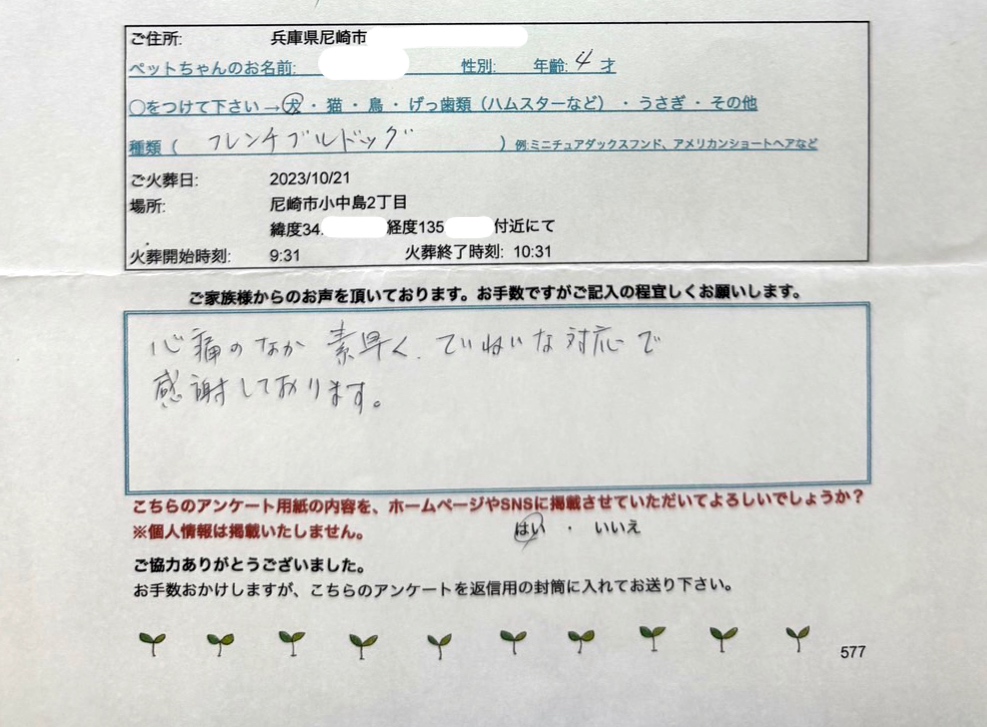 ご住所: 兵庫県尼崎市
ペットちゃんのお名前: 性別: 年齢: 4 才
○をつけて下さい→犬・猫・鳥・げっ歯類（ハムスターなど）・うさぎ・その他
種類（ フレンチブルドッグ ）例:ミニチュアダックスフンド、アメリカンショートヘアなど
ご火葬日: 2023/10/21
場所: 尼崎市小中島2丁目
緯度34. 経度135 付近にて
火葬開始時刻: 9:31 火葬終了時刻: 10:31
ご家族様からのお声を頂いております。お手数ですがご記入の程宜しくお願いします。
心痛のなか 素早く、ていねいな対応で
感謝しております。
こちらのアンケート用紙の内容を、ホームページやSNSに掲載させていただいてよろしいでしょうか？
※個人情報は掲載いたしません。 はい ・ いいえ
ご協力ありがとうございました。
お手数おかけしますが、こちらのアンケートを返信用の封筒に入れてお送り下さい。
577